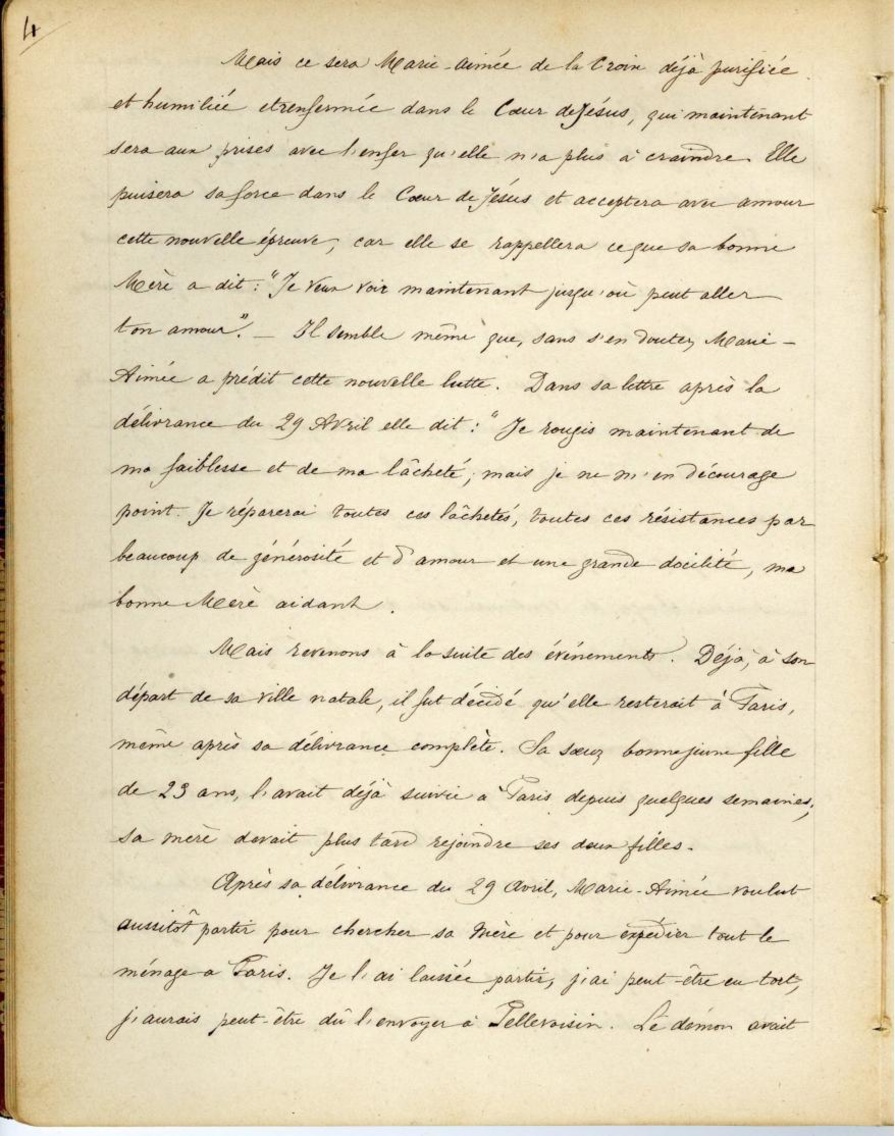 4
Mais ce sera Marie-Aimée de la Croix déjà purifiée
et humiliée et renfermée dans le Cœur de Jésus, qui maintenant
sera aux prises avec l'enfer qu'elle n'a plus à craindre. Elle
puisera sa force dans le Cœur de Jésus et acceptera avec amour
cette nouvelle épreuve, car elle se rappellera ce que sa bonne
Mère a dit : "Je veux voir maintenant jusqu'où peut aller
ton amour". — Il semble même que, sans s'en douter, Marie-
Aimée a prédit cette nouvelle lutte. Dans sa lettre après la
délivrance du 29 Avril elle dit : "Je rougis maintenant de
ma faiblesse et de ma lâcheté ; mais je ne m'en décourage
point. Je réparerai toutes ces lâchetés, toutes ces résistances par
beaucoup de générosité et d'amour et une grande docilité, ma
bonne Mère aidant.
Mais revenons à la suite des événements. Déjà, à son
départ de sa ville natale, il fut décidé qu'elle resterait à Paris,
même après sa délivrance complète. Sa sœur, bonne jeune fille
de 23 ans, l'avait déjà suivie à Paris depuis quelques semaines ;
sa mère devait plus tard rejoindre ses deux filles.
Après sa délivrance du 29 Avril, Marie-Aimée voulut
aussitôt partir pour chercher sa Mère et pour expédier tout le
ménage a Paris. Je l'ai laissée partir, j'ai peut-être eu tort,
j'aurais peut-être dû l'envoyer à Pellevoisin. Le démon avait